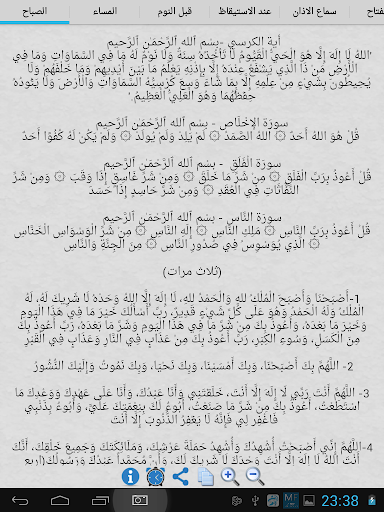 الصباح المساء قبل النوم عند الاستيقاظ سماع الاذان فتاح
آية الكرسي -بِسْمِ اَللهِ اَلرَّحْمَنِ اَلرَّحِيمِ
'اللهُ لَا إِلَهَ إِلَّا هُوَ الْحَيُّ الْقَيُّومُ لَا تَأْخُذُهُ سِنَةٌ وَلَا نَوْمٌ لَهُ مَا فِي السَّمَاوَاتِ وَمَا فِي
الْأَرْضِ مَن ذَا الَّذِي يَشْفَعُ عِنْدَهُ إِلَّا بِإِذْنِهِ يَعْلَمُ مَا بَيْنَ أَيْدِيهِمْ وَمَا خَلْفَهُمْ وَلَا
يُحِيطُونَ بِشَيْءٍ مِنْ عِلْمِهِ إِلَّا بِمَا شَاءَ وَسِعَ كُرْسِيُّهُ السَّمَاوَاتِ وَالْأَرْضَ وَلَا يَئُودُهُ
حِفْظُهُمَا وَهُوَ الْعَلِيُّ الْعَظِيمُ. '
سورة الإِخْلَاصِ - بِسْمِ اَللهِ اَلرَّحْمَنِ اَلرَّحِيمِ
قُلْ هُوَ اللهُ أَحَدٌ ۞ اللهُ الصَّمَدُ ۞ لَمْ يَلِدْ وَلَمْ يُولَدْ ۞ وَلَمْ يَكُن لَهُ كُفُوًا أَحَدٌ
سورة الْفَلَقِ - بِسْمِ اَللهِ اَلرَّحْمَنِ اَلرَّحِيمِ
قُلْ أَعُوذُ بِرَبِّ الْفَلَقِ ۞ مِن شَرِّ مَا خَلَقَ ۞ وَمِن شَرِّ غَاسِقٍ إِذَا وَقَبَ ۞ وَمِن شَرِّ
النَّفَّاثَاتِ فِي الْعُقَدِ ۞ وَمِن شَرِّ حَاسِدٍ إِذَا حَسَدَ
سورة النَّاسِ - بِسْمِ اَللهِ اَلرَّحْمَنِ اَلرَّحِيمِ
قُلْ أَعُوذُ بِرَبِّ النَّاسِ ۞ مَلِكِ النَّاسِ ۞ إِلَهِ النَّاسِ ۞ مِن شَرِّ الْوَسْوَاسِ الْخَنَّاسِ
۞ الَّذِي يُوَسْوِسُ فِي صُدُورِ النَّاسِ ۞ مِنَ الْجِنَّةِ وَالنَّاسِ
(ثَلَاثَ مَرَّاتٍ)
1-أَصْبَحْنَا وَأَصْبَحَ الْمُلْكُ لِلَّهِ وَالْحَمْدُ لِلَّهِ، لَا إِلَهَ إِلَّا اللهُ وَحْدَهُ لَا شَرِيكَ لَهُ، لَهُ
الْمُلْكُ وَلَهُ الْحَمْدُ وَهُوَ عَلَى كُلِّ شَيْءٍ قَدِيرٌ، رَبِّ أَسْأَلُكَ خَيْرَ مَا فِي هَذَا الْيَوْمِ
وَخَيْرَ مَا بَعْدَهُ، وَأَعُوذُ بِكَ مِنْ شَرِّ مَا فِي هَذَا الْيَوْمِ وَشَرِّ مَا بَعْدَهُ، رَبِّ أَعُوذُ بِكَ
مِنَ الْكَسَلِ، وَسُوءِ الْكِبَرِ، رَبِّ أَعُوذُ بِكَ مِنْ عَذَابٍ فِي النَّارِ وَعَذَابٍ فِي الْقَبْرِ
2- اللَّهُمَّ بِكَ أَصْبَحْنَا، وَبِكَ أَمْسَيْنَا، وَبِكَ نَحْيَا، وَبِكَ نَمُوتُ وَإِلَيْكَ النُّشُورُ
3- اللَّهُمَّ أَنْتَ رَبِّي لَا إِلَهَ إِلَّا أَنْتَ، خَلَقْتَنِي وَأَنَا عَبْدُكَ، وَأَنَا عَلَى عَهْدِكَ وَوَعْدِكَ مَا
اسْتَطَعْتُ، أَعُوذُ بِكَ مِنْ شَرِّ مَا صَنَعْتُ، أَبُوءُ لَكَ بِنِعْمَتِكَ عَلَيَّ، وَأَبُوءُ بِذَنْبِي
فَاغْفِرْ لِي فَإِنَّهُ لَا يَغْفِرُ الذُّنُوبَ إِلَّا أَنْتَ
4-اللَّهُمَّ إِنِّي أَصْبَحْتُ أُشْهِدُكَ وَأُشْهِدُ حَمَلَةَ عَرْشِكَ، وَمَلَائِكَتَكَ وَجَمِيعَ خَلْقِكَ، أَنَّكَ
أَنْتَ اللهُ لَا إِلَهَ إِلَّا أَنْتَ وَحْدَكَ لَا شَرِيكَ لَكَ، وَأَنَّ مُحَمَّداً عَبْدُكَ وَرَسُولُكَ(أربع
23:38